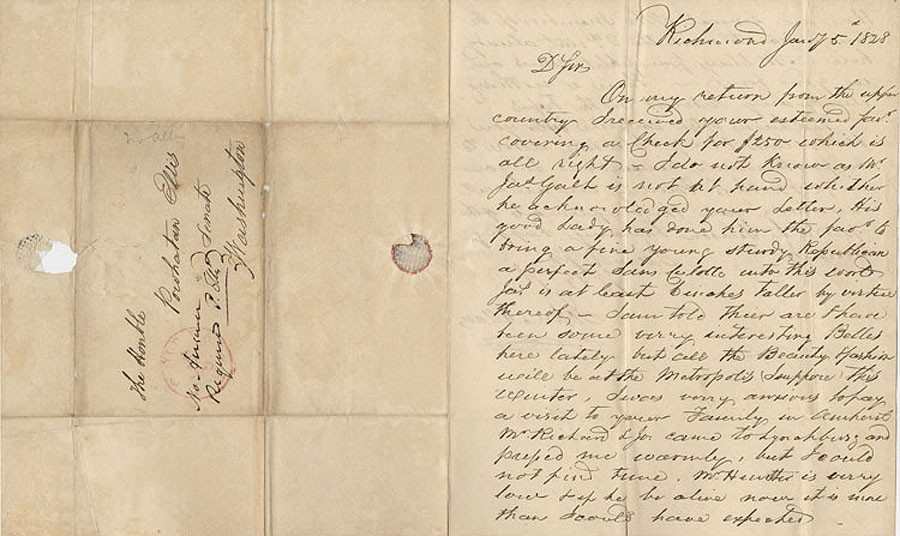 The Honble
Powhatan Ellis
Senate
Washington
Richmond Jany 5th 1828
D Sir,
On my return from the upper
country I received your esteemed favr.
covering a Check for $250 which is
all right – I do not Know as Mr
Jas Galt is not at hand whether
he acknowledged your Letter, His
good Lady has done him the favr. to
bring a fine young sturdy Republican
a perfect Sans Culotte into this world
Jas. is at least 6 inches taller by virtue
thereof – I am told there are & have
been some verry interesting Belles
here lately but all the Beauty & Fashion
will be at the Metropolis I suppose this
Winter, I was verry anxious to pay
a visit to your Family in Amherst
Mr Richard & Jo. came to Lynchburg and
pressed me warmly, but I could
not find time. Mr is verry
low & if he be alive now it is more
than I could have expected